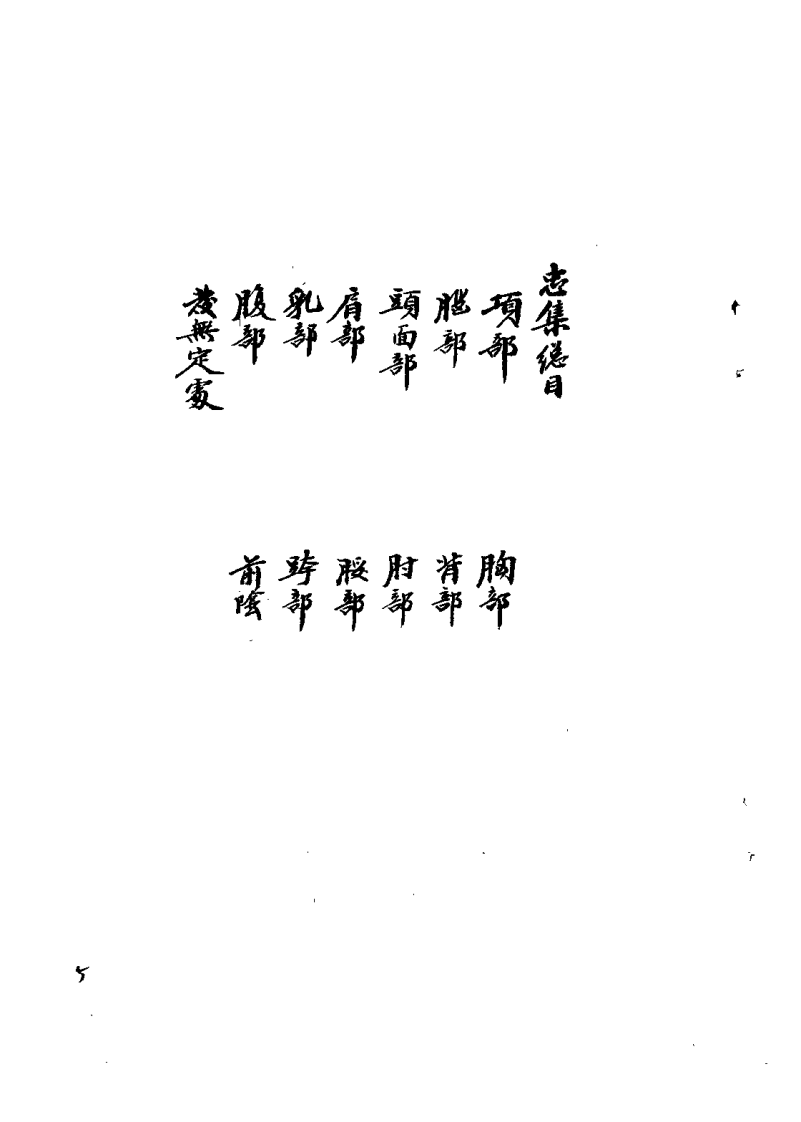 忠集緫目
項部
胸部
腦部
背部
頭面部
肘部
肩部
腰部
乳部
跨部
腹部
前陰
發無定處